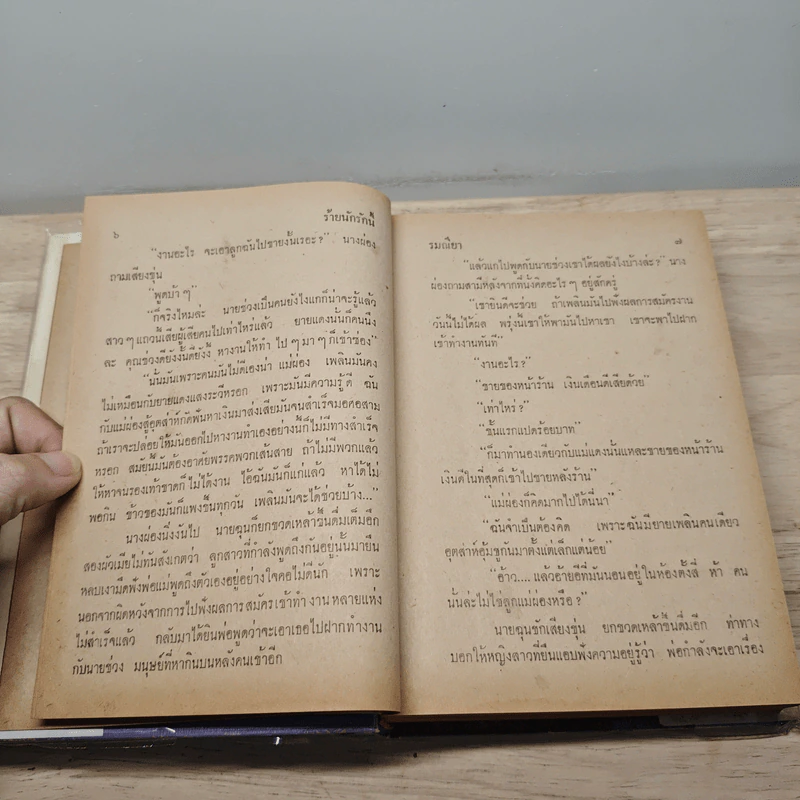 ๖ ร้ายนักรักนี้
“งานอะไร จะเอาลูกฉันไปขายงั้นเรอะ?” นางผ่อง
ถามเสียงขุ่น
“พูดบ้า ๆ”
“ก็จริงไหมล่ะ นายช่วงเป็นคนยังไงแกก็น่าจะรู้แล้ว
สาว ๆ แถวนี้เสียผู้เสียคนไปเท่าไหร่แล้ว ยายแดงนั่นก็คนนึง
ละ คุณช่วงดียังงั้นดียังงี้ หางานให้ทำ ไป ๆ มา ๆ ก็เข้าซ่อง”
“นั่นมันเพราะคนมันไม่ดีเองน่า แม่ผ่อง เพลินมันคง
ไม่เหมือนกับยายแดงแสงระวีหรอก เพราะมันมีความรู้ดี ฉัน
กับแม่ผ่องสู้อุตส่าห์กัดฟันหาเงินมาส่งเสียมันจนสำเร็จมอคอสาม
ถ้าเราจะปล่อยให้มันออกไปหางานทำเองอย่างนี้ก็ไม่มีทางสำเร็จ
หรอก สมัยนี้มันต้องอาศัยพรรคพวกเส้นสาย ถ้าไม่มีพวกแล้ว
ให้หาจนรองเท้าขาดก็ไม่ได้งาน ไอ้ฉันมันก็แก่แล้ว หาได้ไม่
พอกิน ข้าวของมันก็แพงขึ้นทุกวัน เพลินมันจะได้ช่วยบ้าง...”
นางผ่องนิ่งงันไป นายฉุนก็ยกขวดเหล้าขึ้นดื่มเต็มอึก
สองผัวเมียไม่ทันสังเกตว่า ลูกสาวที่กำลังพูดถึงกันอยู่นั้นมายืน
หอบเงามืดฟังพ่อแม่พูดถึงตัวเองอยู่อย่างใจคอไม่ดีนัก เพราะ
นอกจากผิดหวังจากการไปฟังผลการสมัครเข้าทำงานหลายแห่ง
ไม่สำเร็จแล้ว กลับมาได้ยินพ่อพูดว่าจะเอาเธอไปฝากทำงาน
กับนายช่วง มนุษย์ที่หากินบนหลังคนเข้าอีก
รมณียา ๗
“แล้วแกไปพูดกับนายช่วงเขาได้ผลยังไงบ้างล่ะ?” นาง
ผ่องถามสามีหลังจากที่นั่งคิดอะไร ๆ อยู่สักครู่
“เขายินดีจะช่วย ถ้าเพลินมันไปฟังผลการสมัครงาน
วันนี้ไม่ได้ผล พรุ่งนี้เขาให้พามันไปหาเขา เขาจะพาไปฝาก
เข้าทำงานทันที”
“งานอะไร?”
“ขายของหน้าร้าน เงินเดือนดีเสียด้วย”
“เท่าไหร่?”
“ขั้นแรกแปดร้อยบาท”
“ก็มาทำนองเดียวกับแม่แดงนั่นแหละขายของหน้าร้าน
เงินดีในที่สุดก็เข้าไปขายหลังร้าน”
“แม่ผ่องก็คิดมากไปได้นี่นา”
“ฉันจำเป็นต้องคิด เพราะฉันมียายเพลินคนเดียว
อุตส่าห์อุ้มชูกันมาตั้งแต่เล็กแต่น้อย”
“อ้าว.... แล้วอ้ายอีที่มันนอนอยู่ในห้องตั้งสี่ ห้า คน
นั้นล่ะไม่ใช่ลูกแม่ผ่องหรือ?”
นายฉุนชักเสียงขุ่น ยกขวดเหล้าขึ้นดื่มอีก ท่าทาง
บอกให้หญิงสาวที่ยืนแอบฟังความอยู่รู้ว่า พ่อกำลังจะเอาเรื่อง